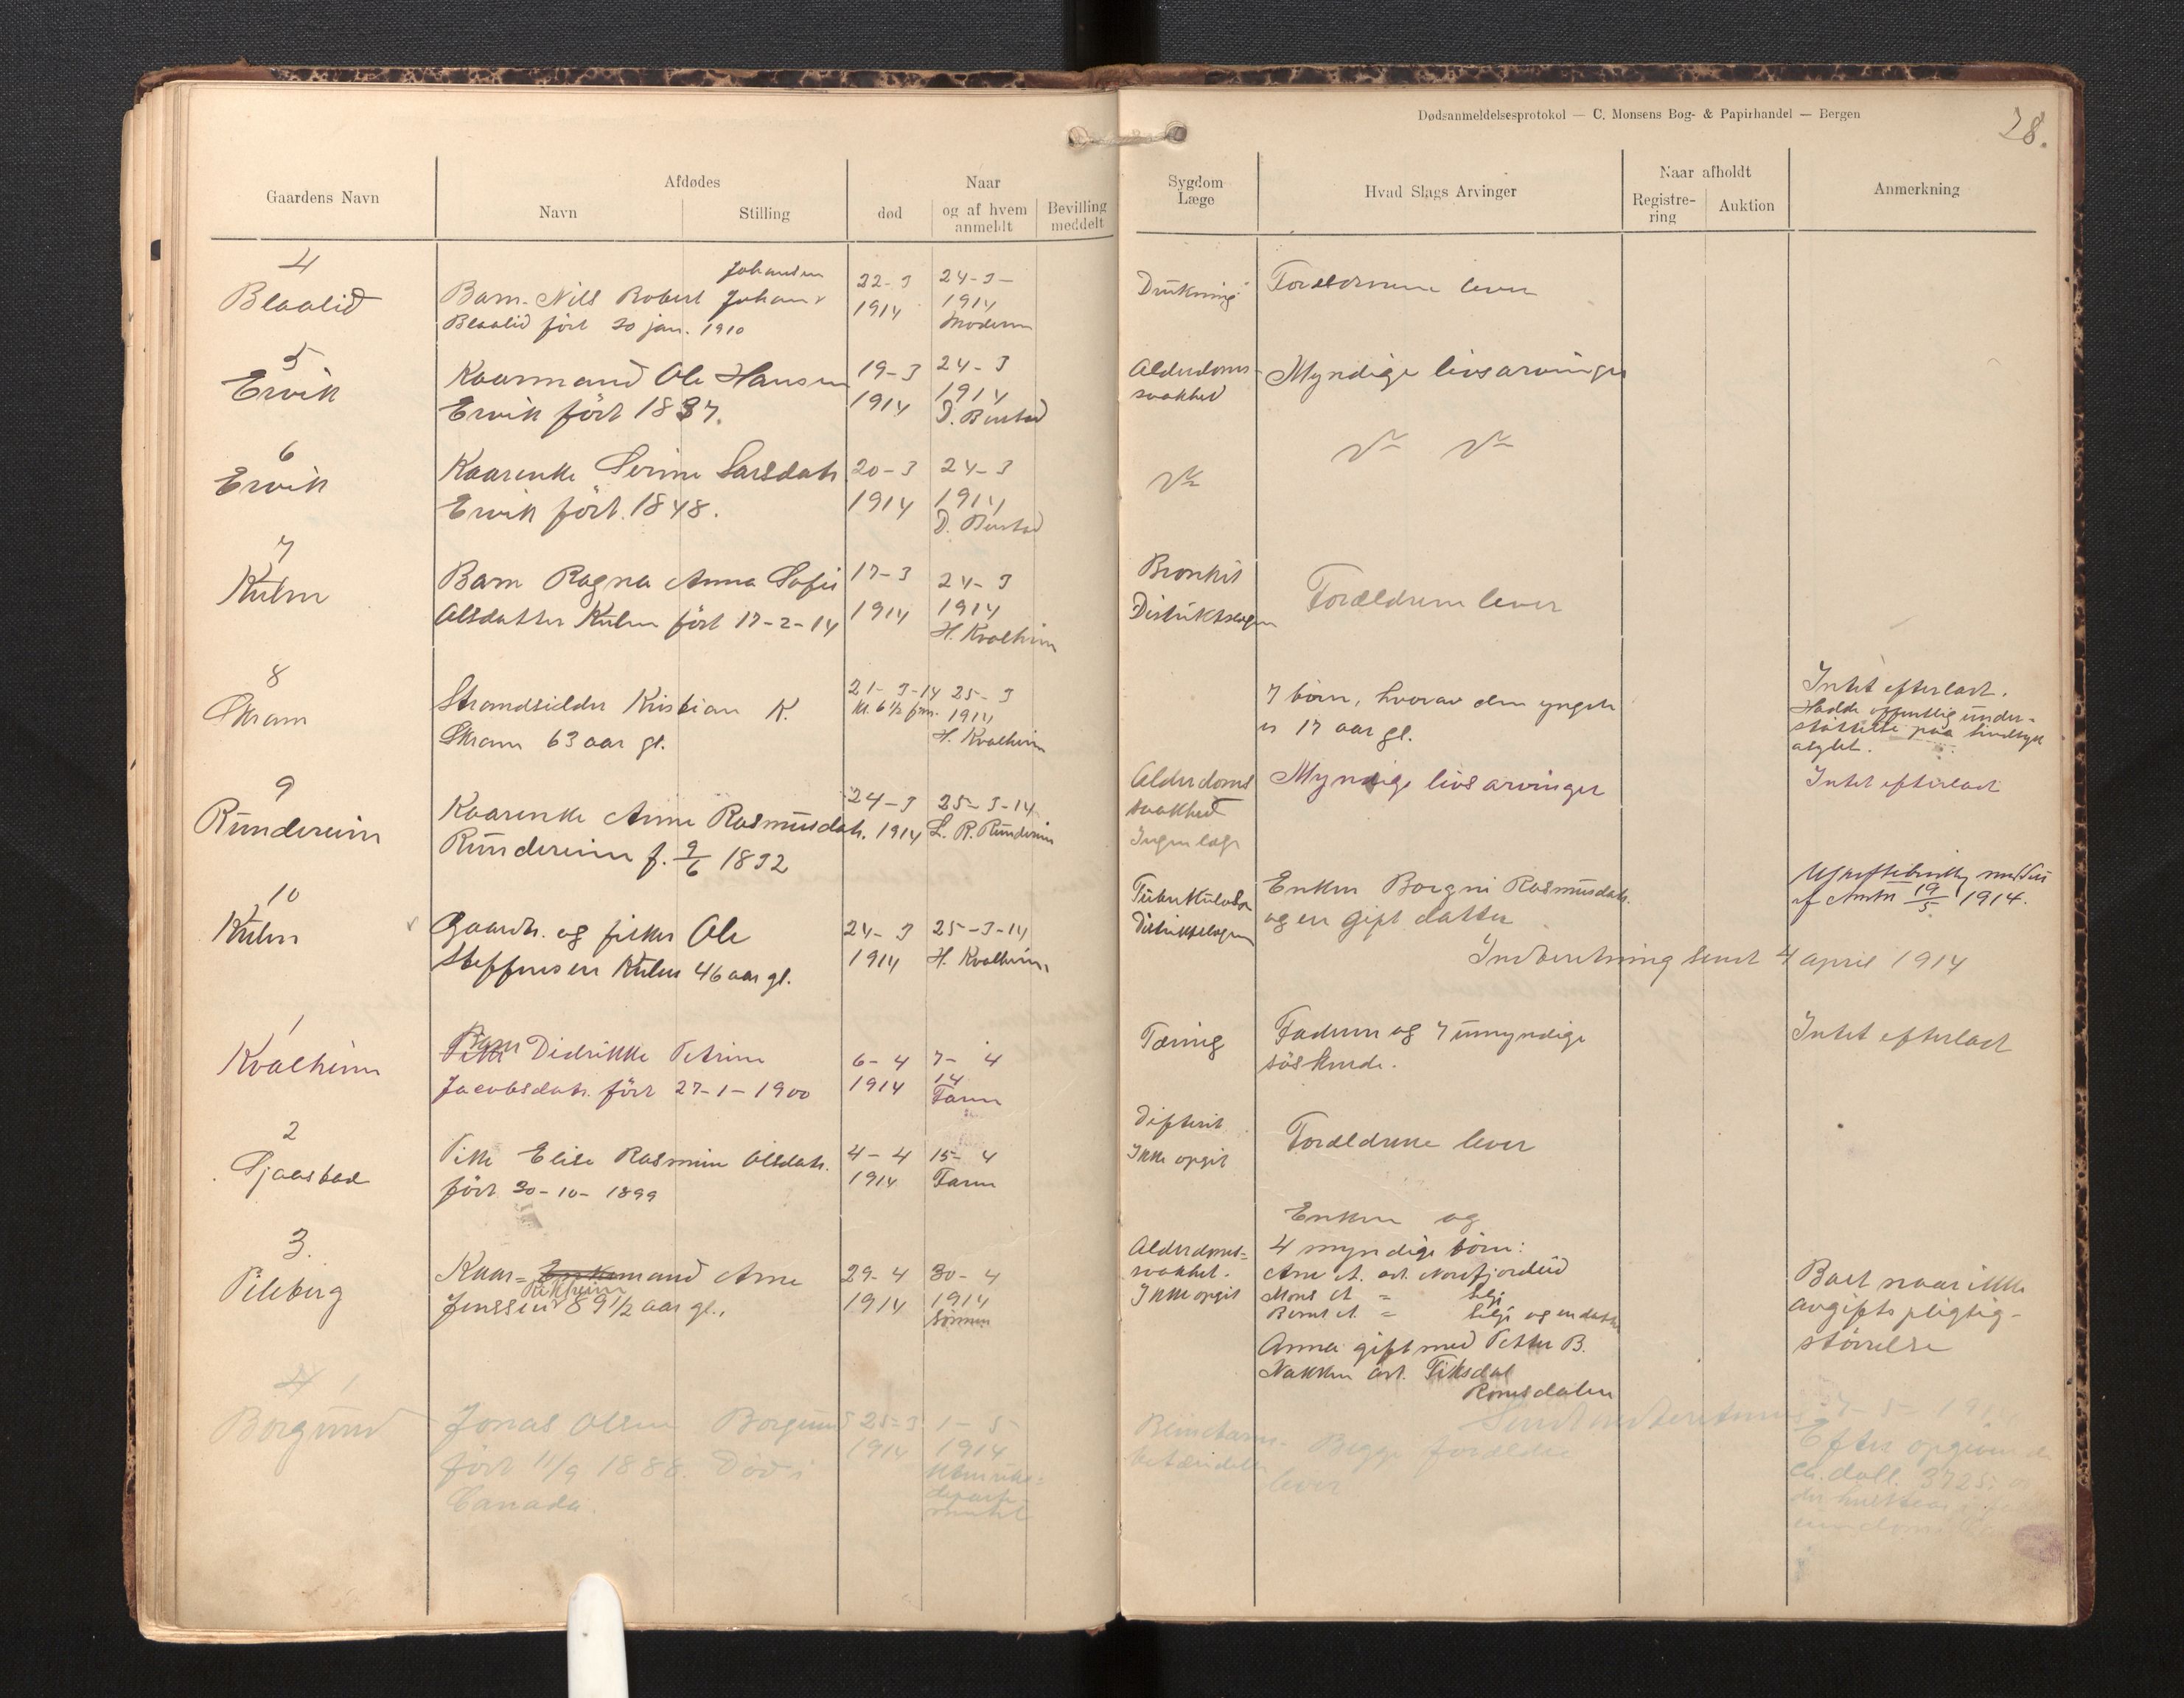 Dødsanmeldelsesprotokol — C. Monsens Bog- & Papirhandel — Bergen
28.
Gaardens Navn
Afdødes
Navn
Stilling
Naar
død
og af hvem anmeldt
Bevilling meddelt
Sygdom Læge
Hvad Slags Arvinger
Naar afholdt
Registre-ring
Auktion
Anmerkning
4
Blaalid
Johansen
Barn. Nils Robert
Blaalid fört 30 jan. 1910
22-3
1914
24-3-
1914
Moderen
Drukning
Forældrene lever
5
Ervik
Kaarmand Ole Hansen
Ervik fört 1837.
19-3
1914
24-3
1914
D. Borstad
Alderdoms-
svakhed
Myndige livsarvinger
6
Ervik
Kaarenke Serine Larsdatr
Ervik fört. 1848.
20-3
1914
24-3
1914
D. Borstad
7
Kulm
Barn Ragna Anna Sofie
Olsdatter Kulm fört 17-2-14
17-3
1914
24-3
1914
H. Kvalheim
Bronkit
Distriktslægen
Forældrene lever
8
Skram
Strandsidder Kristian K.
Skram 63 aar gl.
21-3-14
kl. 6 1/2 fm.
25-3
1914
H. Kvalheim
7 börn, hvorav den yngste
er 17 aar gl.
Intet efterladt.
Hadde offentlig under-
støttelse paa
9
Rundereim
Kaarenke Anne Rasmusdatr.
Rundereim f. 9/6 1832
24-3
1914
25-3-14
L. R. Rundereim
Alderdoms
svakhed
Ingen læge
Myndige livsarvinger
Intet efterladt
10
Kulm
Gaardbr. og fisker Ole
Steffensen Kulm 46 aar gl.
24-3
1914
25-3-14
H. Kvalheim
Tuberkulose
Distriktslægen
Enken Borgni Rasmusdatr.
og en gift datter
Uskiftebevilling meddelt
af Amtm 19/5 1914.
Indberetning sendt 4 april 1914
1
Kvalheim
Barn
Pike Didrikke Petrine
Jacobsdatr. fört 27-1-1900
6-4
1914
7-4
14
Faren
Tæring
Faderen og 7 umyndige
söskende.
Intet efterladt
2
Tjaastad
Pike Elise Rasmine Olsdatr.
fört 30-10-1899
4-4
1914
15-4
Faren
Difterit
Ikke opgit
Forældrene lever
3.
Pileberg
Kaar= mand Arne
Jenssen 89 1/2 aar gl.,
29-4
1914
30-4
1914
Sönnen
Alderdoms-
svakhet.
Ikke opgit
Enken og
4 myndige börn:
Arne A. adr. Nordfjordeid
Mons A = Selje
Bernt A. = Selje og en datter
Anna gift med Petter B.
Nakken adr. Fiksdal
Romsdalen
Boet naar ikke
avgiftspligtig-
störrelse
4 1
Borgund
Jonas Olsen Borgund
fört 11/9 1888. Död i
Canada.
25-3
1914
1-5
1914
Utenriks-
departe-
mentet
Begge forældre
lever
Efter opgivende